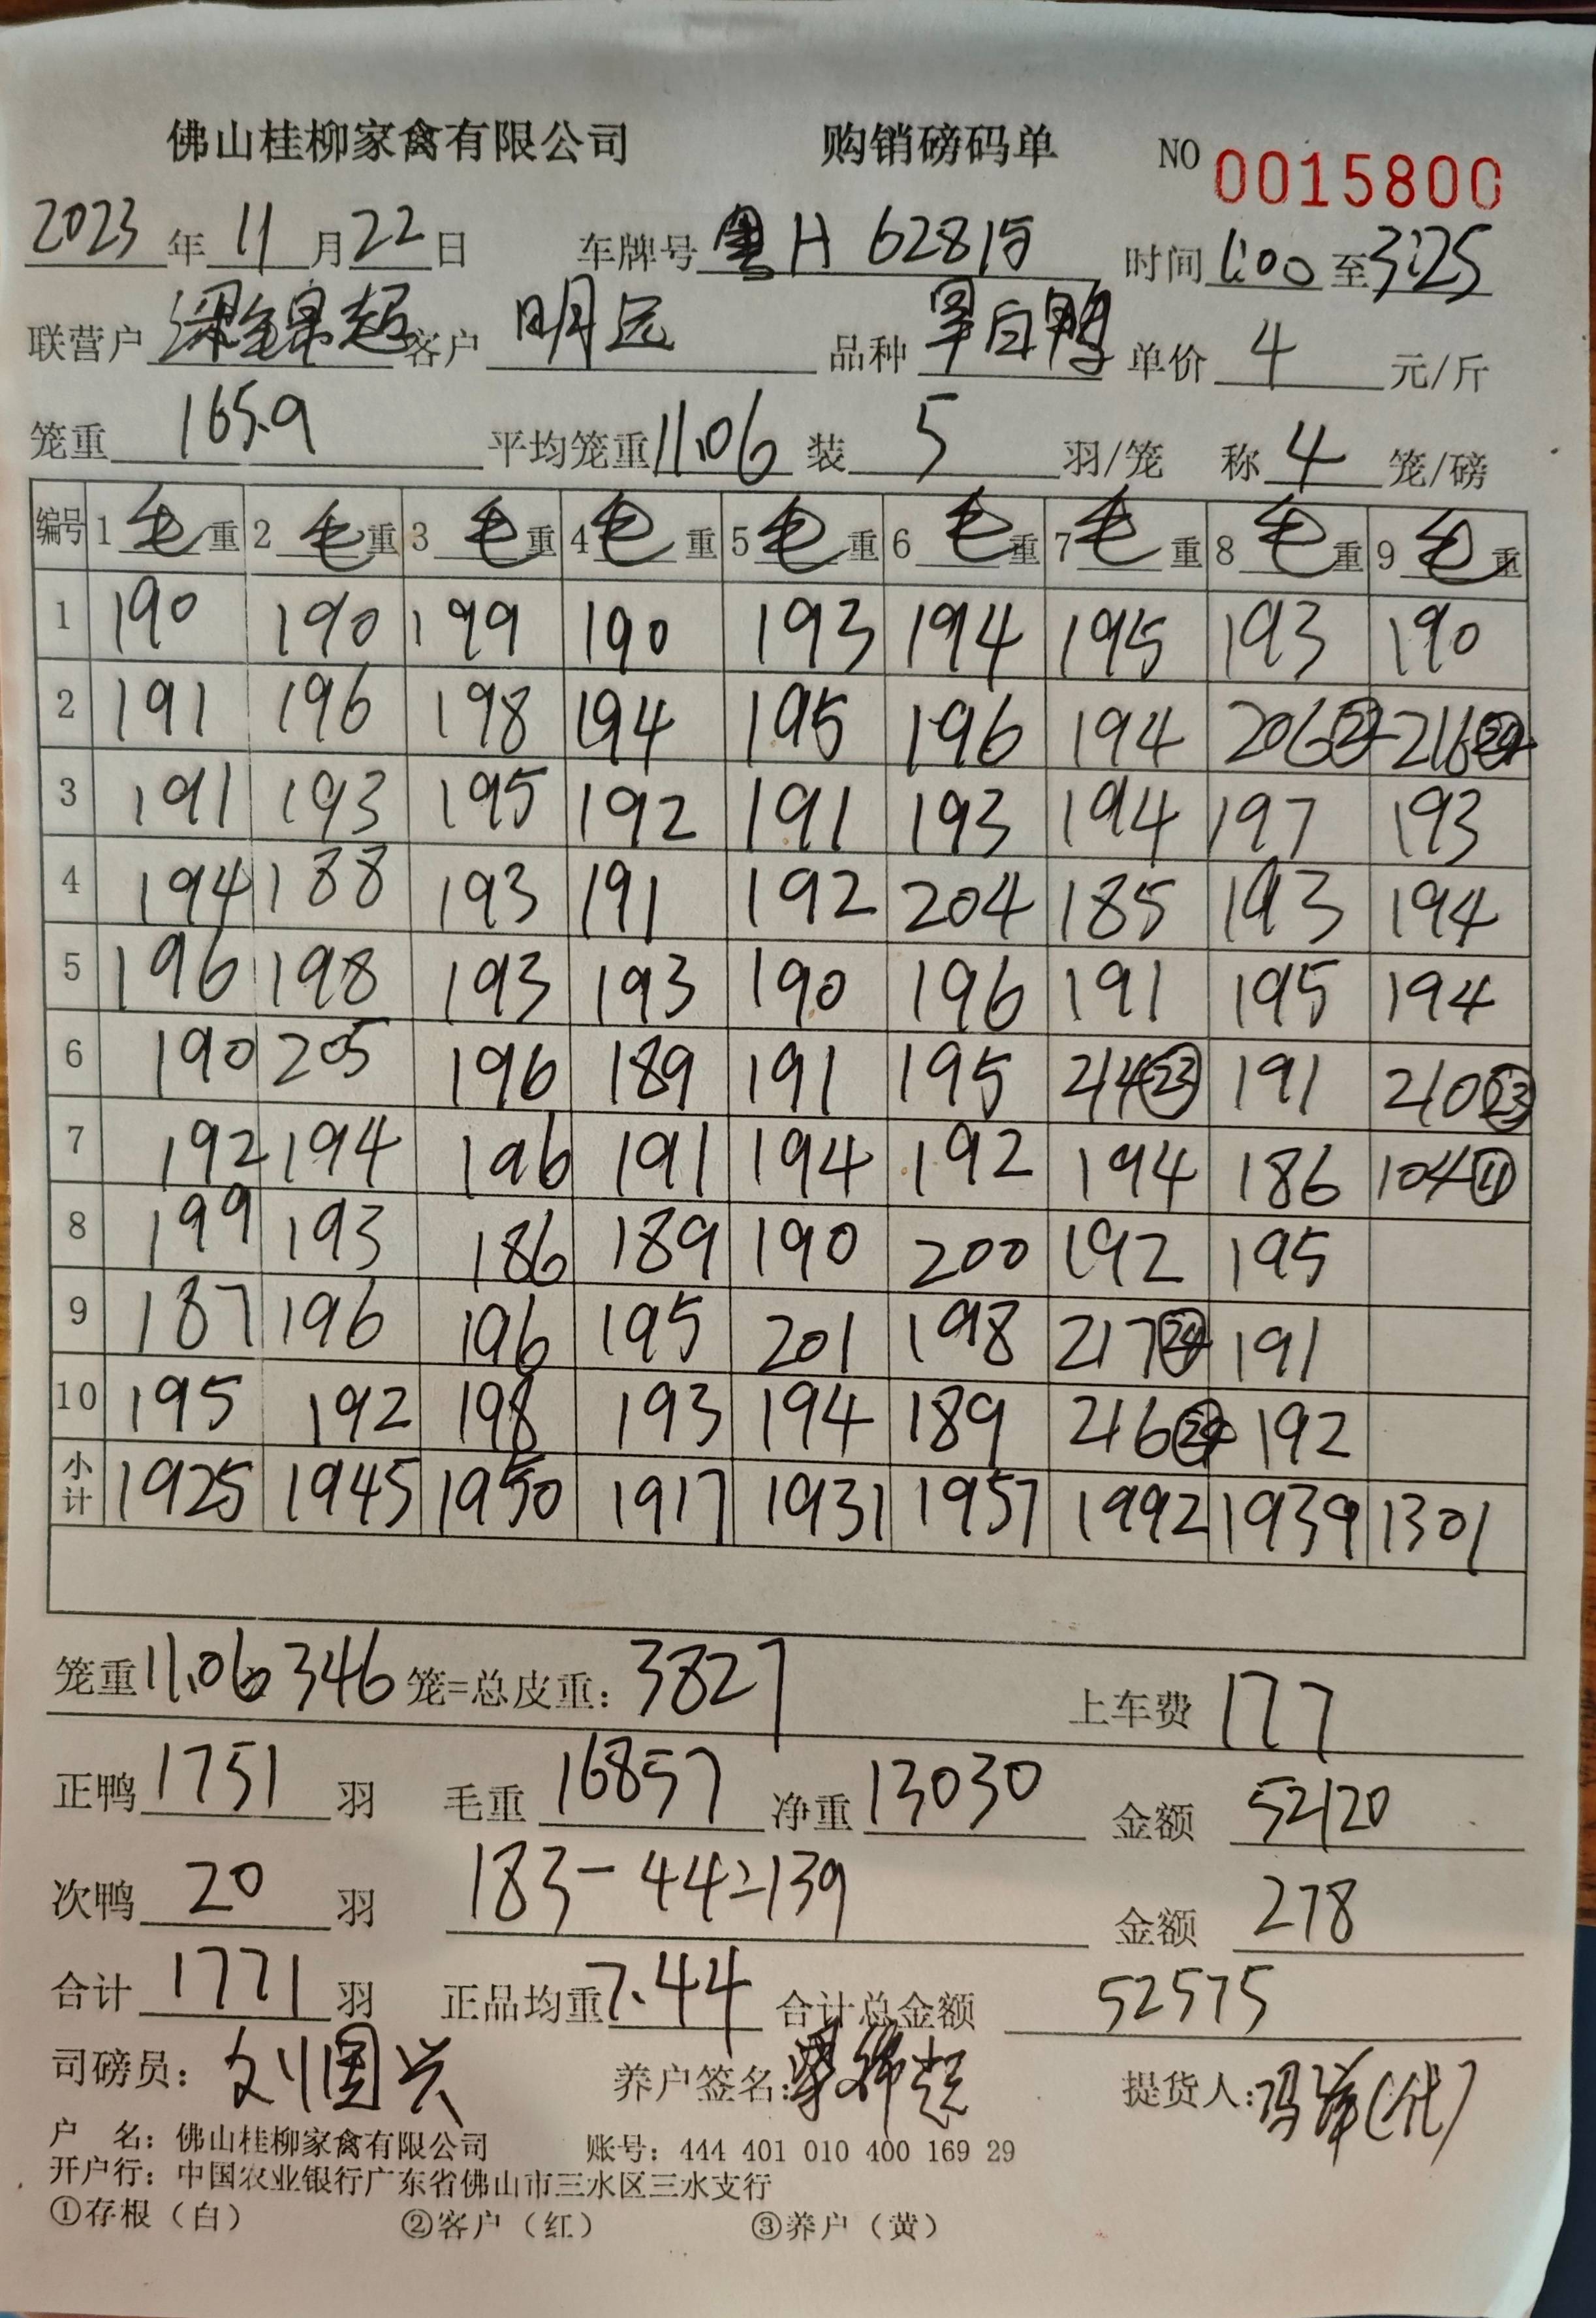 佛山桂柳家禽有限公司 购销磅码单 NO 0015800
2023年11月22日 车牌号 粤H 62815 时间 1:00 至 3:25
联营户 梁锦超 客户 明远 品种 单价 4 元/斤
笼重 165.9 平均笼重 11.06 装 5 羽/笼 称 4 笼/磅
编号 1 毛重 2 毛重 3 毛重 4 毛重 5 毛重 6 毛重 7 毛重 8 毛重 9 毛重
1 190 190 199 190 193 194 195 193 190
2 191 196 198 194 195 196 194 206 216㉔
3 191 193 195 192 191 193 194 197 193
4 194 188 193 191 192 204 185 193 194
5 196 198 193 193 190 196 191 195 194
6 190 205 196 189 191 195 214㉓ 191 210㉓
7 192 194 196 191 194 192 194 186 104⑪
8 199 193 186 189 190 200 192 195
9 187 196 196 195 201 198 217㉔ 191
10 195 192 198 193 194 189 216㉔ 192
小计 1925 1945 1950 1917 1931 1957 1992 1939 1301
笼重 11.06 346 笼=总皮重: 3827 上车费 177
正鸭 1751 羽 毛重 16857 净重 13030 金额 52120
次鸭 20 羽 183-44=139 金额 278
合计 1771 羽 正品均重 7.44 合计总金额 52575
司磅员: 刘国兴 养户签名: 梁锦超 提货人: 冯(代)
户 名: 佛山桂柳家禽有限公司 账号: 444 401 010 400 169 29
开户行: 中国农业银行广东省佛山市三水区三水支行
①存根(白) ②客户(红) ③养户(黄)